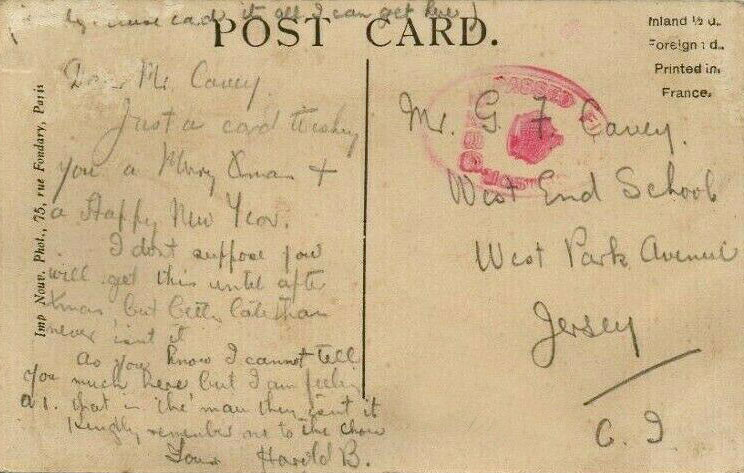 card it all I can get here)
POST CARD.
Inland ½ d.
Foreign 1 d.
Printed in
France.
Imp Nouv. Phot., 75, rue Fondary, Paris
Dear Mr Cavey.
Just a card Wishing
you a Merry Xmas +
a Happy New Year.
I dont suppose you
will get this until after
Xmas but better late than
never isnt it
As you know I cannot tell
you much here but I am feeling
a 1. that is the main thing isnt it
Kindly remember me to the
Yours Harold B.
PASSED
Mr. G. F. Cavey.
West End School
West Park Avenue
Jersey
C. I.